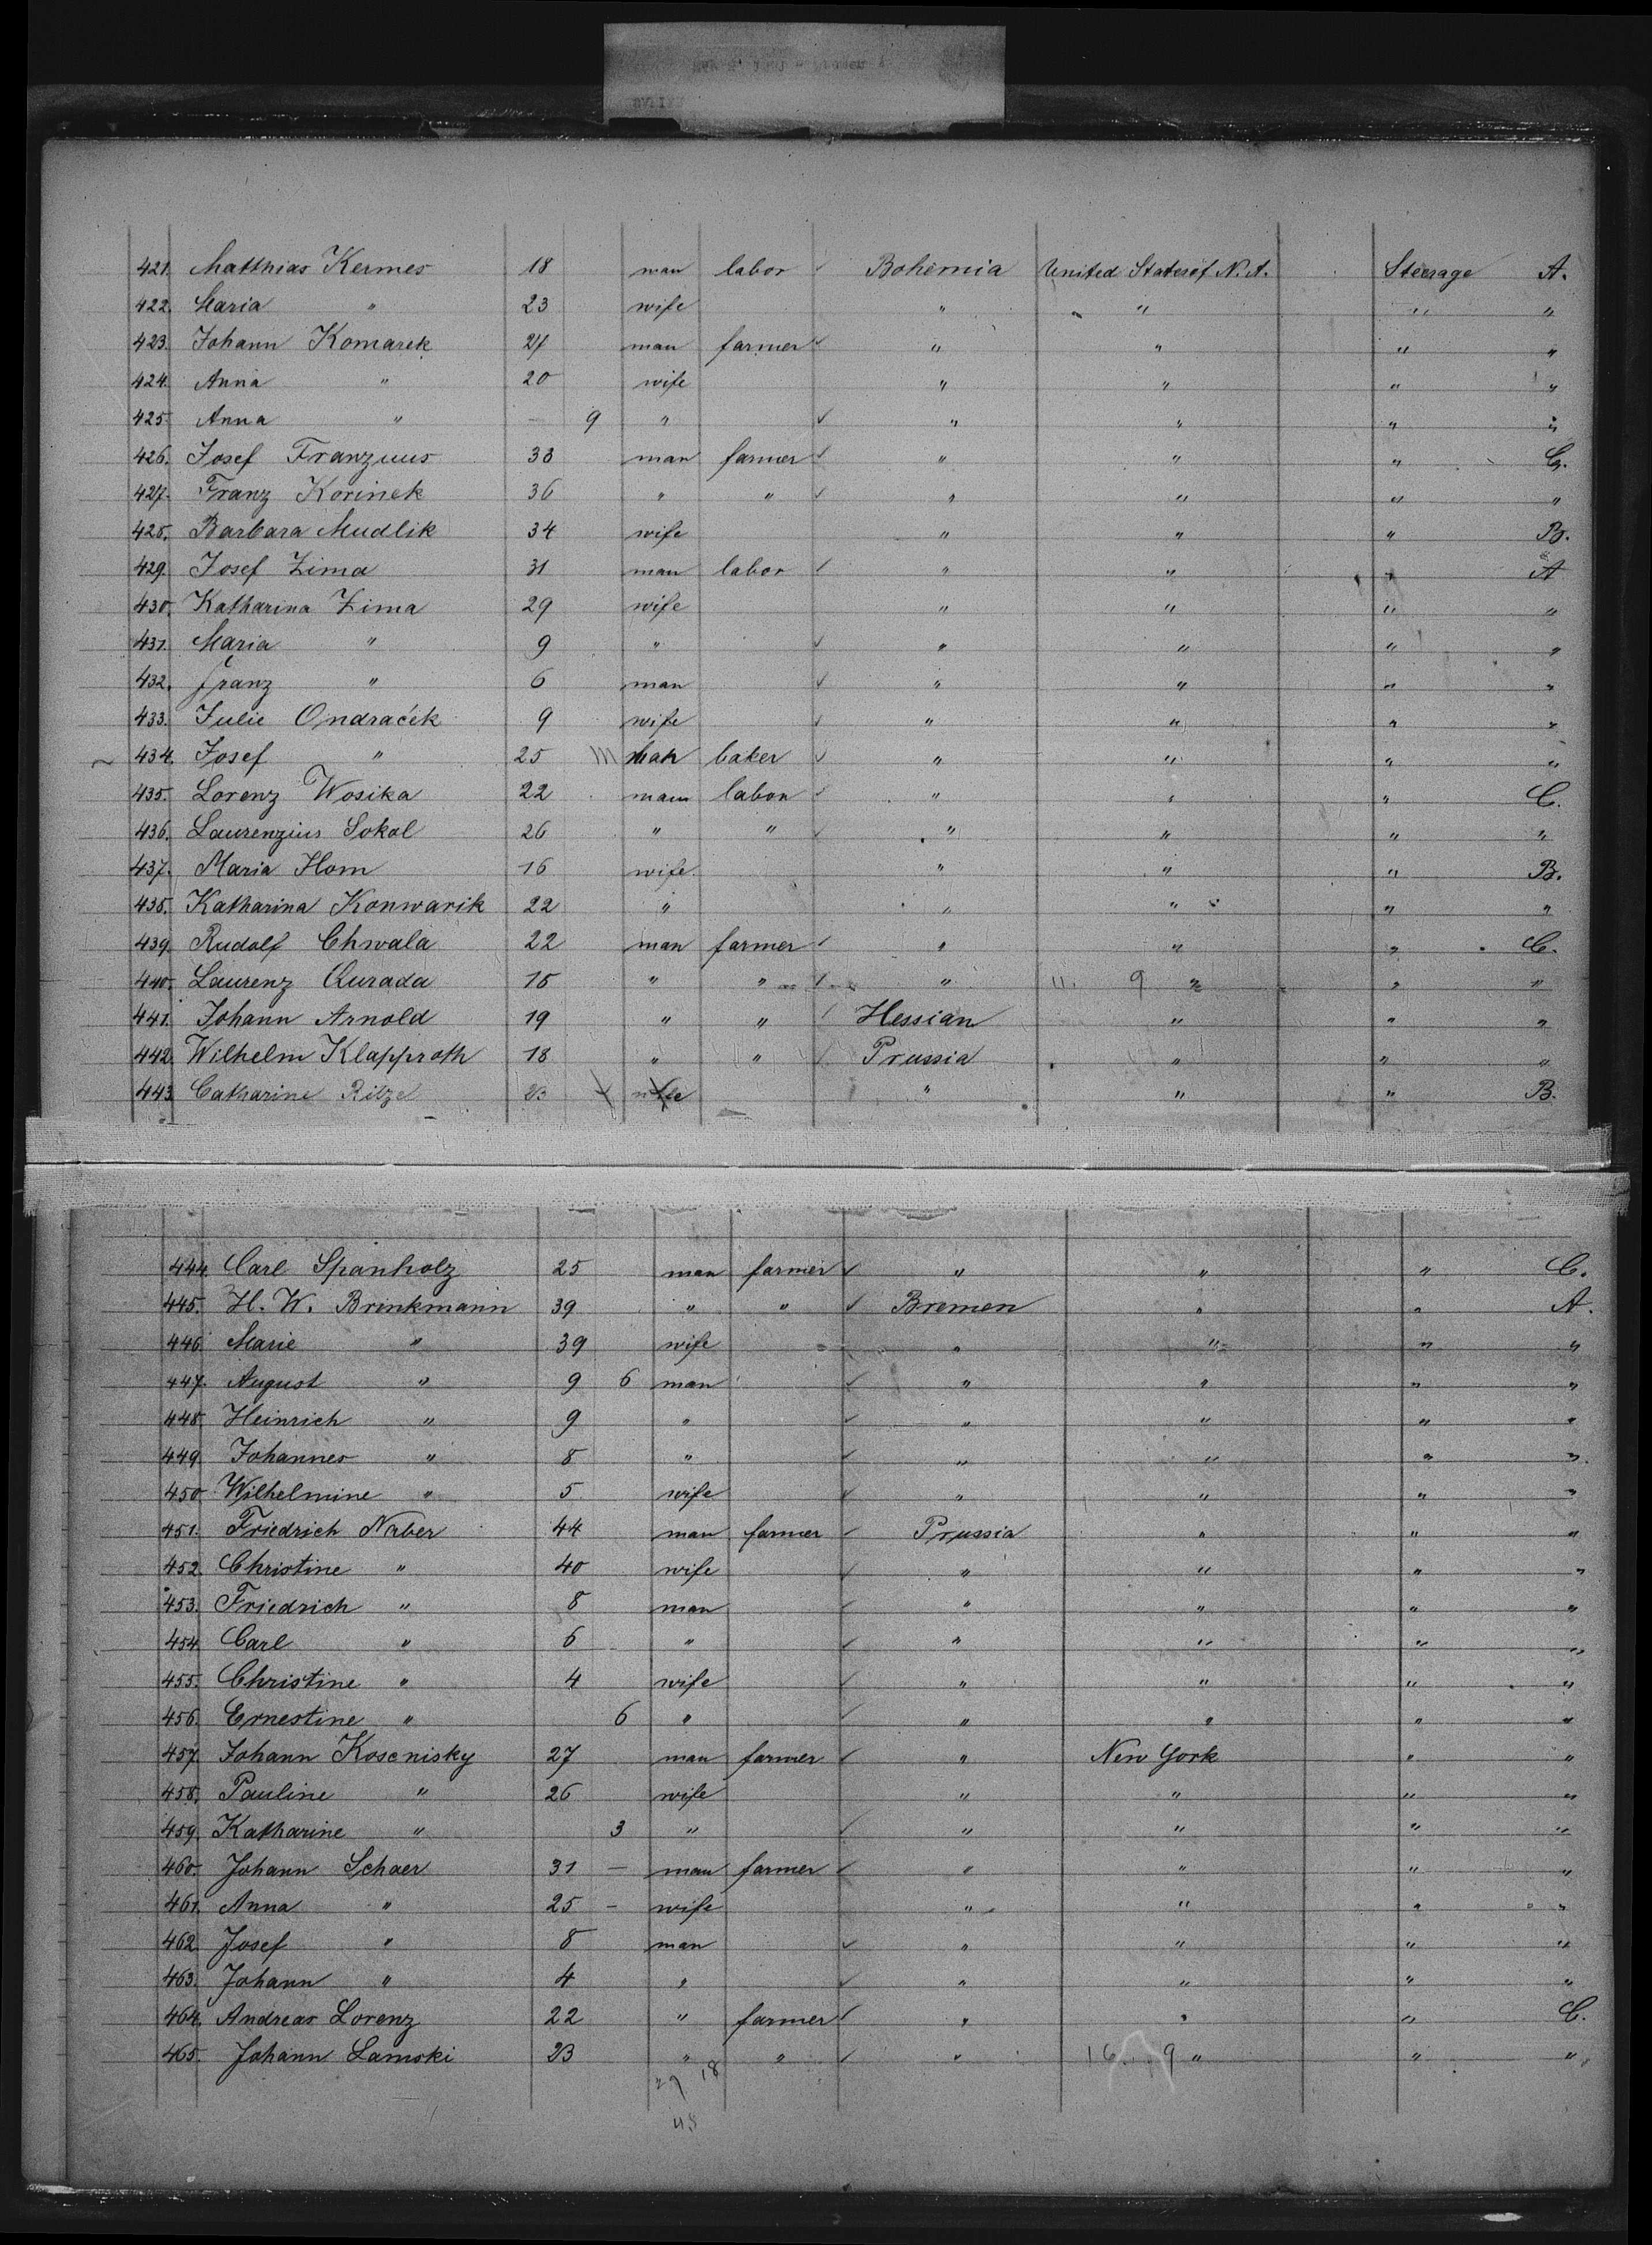 421. Matthias Kermes 18 man labor ✓ Bohemia United States of N. A. Steerage A.
422. Maria " 23 wife " " " "
423. Johann Komarek 27 man farmer ✓ " " " "
424. Anna " 20 wife " " " "
425. Anna " — 9 " ✓ " " " "
426. Josef Franzuus 33 man farmer ✓ " " " C.
427. Franz Korinek 36 " " ✓ " " " "
428. Barbara Mudlik 34 wife " " " B.
429. Josef Zima 31 man labor ✓ " " " A
430. Katharina Zima 29 wife " " " "
431. Maria " 9 " ✓ " " " "
432. Franz " 6 man ✓ " " " "
433. Julie Ondraček 9 wife ✓ " " " "
434. Josef " 25 man baker ✓ " " " "
435. Lorenz Wosika 22 man labor ✓ " " " C.
436. Laurenzius Sokol 26 " " ✓ " " " "
437. Maria Hom 16 wife " " " B.
438. Katharina Konwarik 22 " " " " "
439. Rudolf Chwala 22 man farmer ✓ " " " C.
440. Laurenz Kurada 18 " " ✓ " 11. 9 " " "
441. Johann Arnold 19 " " ✓ Hessian " " "
442. Wilhelm Klapproth 18 " " ✓ Prussia " " "
443. Catharine Ritze 23 wife " " " B.
444. Carl Spanholz 25 man farmer ✓ " " " C.
445. H. W. Brinkmann 39 " " ✓ Bremen " " A.
446. Marie " 39 wife " " " "
447. August " 9 6 man ✓ " " " "
448. Heinrich " 9 " ✓ " " " "
449. Johannes " 8 " ✓ " " " "
450. Wilhelmine " 5 wife ✓ " " " "
451. Friedrich Naber 44 man farmer ✓ Prussia " " "
452. Christine " 40 wife ✓ " " " "
453. Friedrich " 8 man ✓ " " " "
454. Carl " 6 " ✓ " " " "
455. Christine " 4 wife ✓ " " " "
456. Ernestine " 6 " ✓ " " " "
457. Johann Koscnisky 27 man farmer ✓ " New York " "
458. Pauline " 26 wife " " " "
459. Katharine " 3 " ✓ " " " "
460. Johann Schaer 31 — man farmer ✓ " " " "
461. Anna " 25 — wife " " " "
462. Josef " 8 man ✓ " " " "
463. Johann " 4 " ✓ " " " "
464. Andreas Lorenz 22 " farmer ✓ " " " C.
465. Johann Lamski 23 " " ✓ " 16. 9 " " "
27 18
45